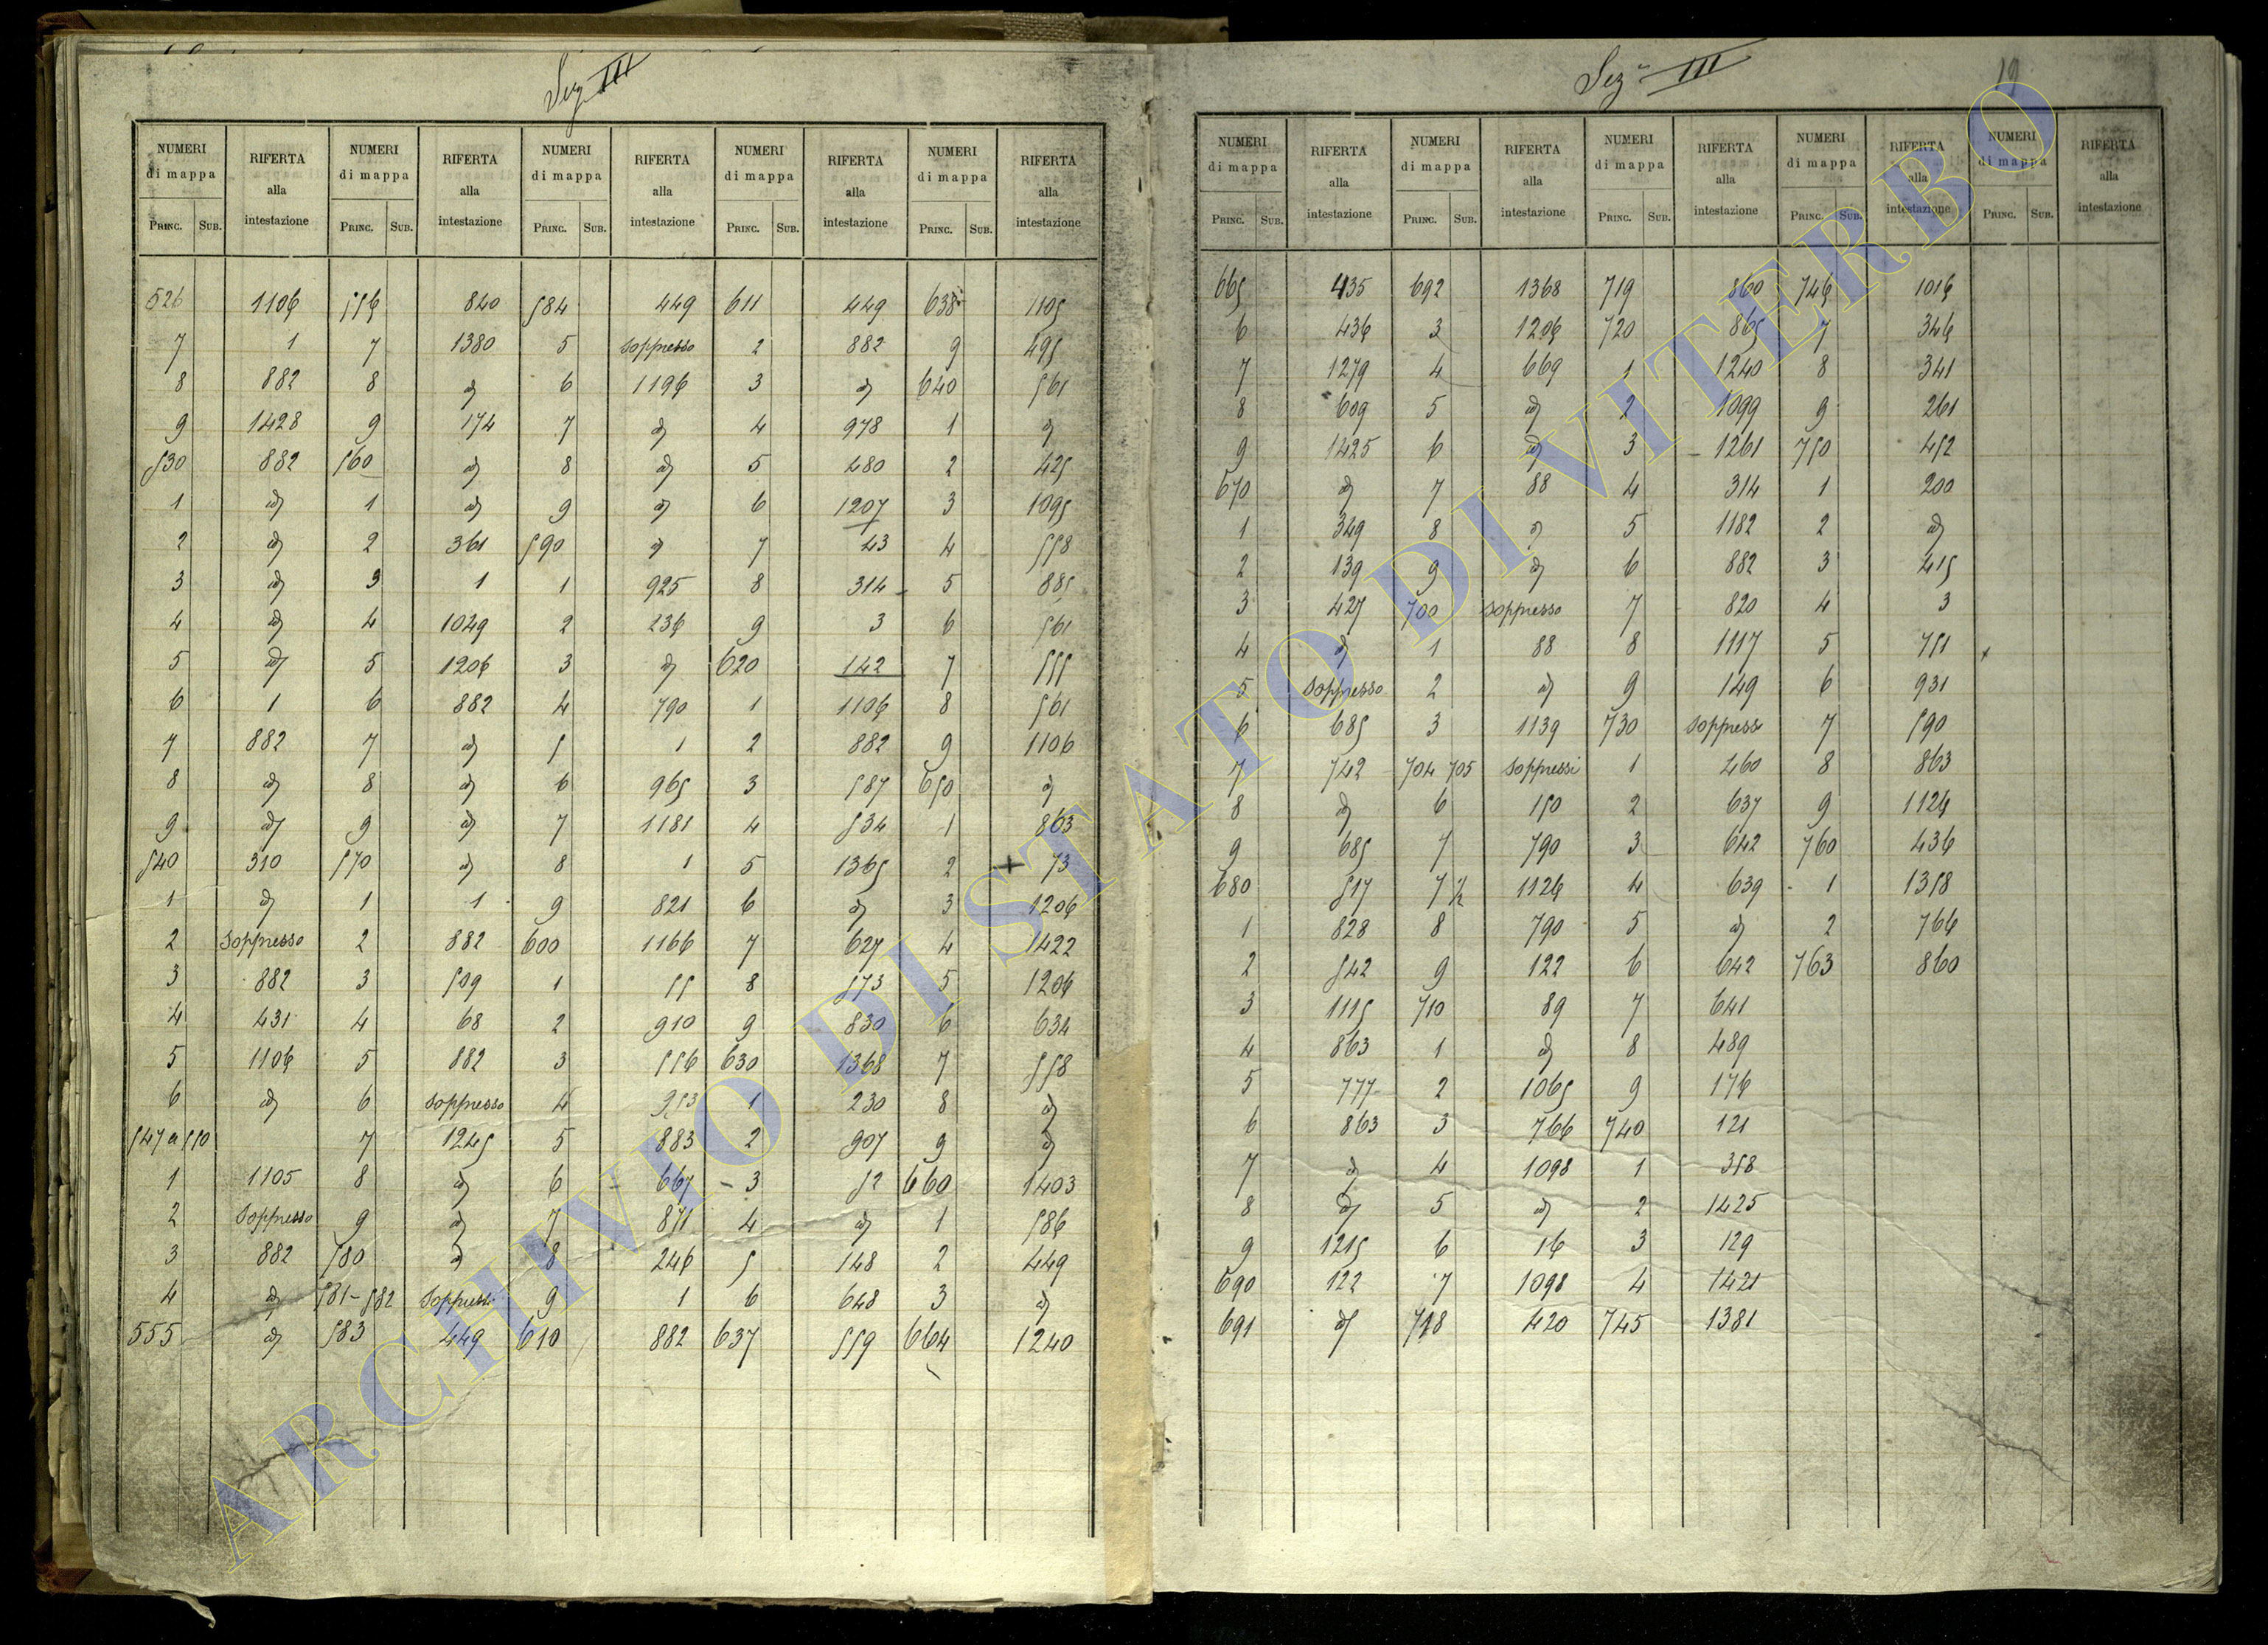 Sez III
NUMERI RIFERTA NUMERI RIFERTA NUMERI RIFERTA NUMERI RIFERTA NUMERI RIFERTA
di mappa alla di mappa alla di mappa alla di mappa alla di mappa alla
PRINC. SUB. intestazione PRINC. SUB. intestazione PRINC. SUB. intestazione PRINC. SUB. intestazione PRINC. SUB. intestazione
526 1106 556 840 584 449 611 449 638 1105
7 1 7 1380 5 soppresso 2 882 9 495
8 882 8 d 6 1196 3 d 640 561
9 1428 9 174 7 d 4 978 1 d
530 882 560 d 8 d 5 480 2 425
1 d 1 d 9 d 6 1207 3 1095
2 d 2 361 590 d 7 43 4 558
3 d 3 1 1 925 8 314 5 885
4 d 4 1049 2 236 9 3 6 561
5 d 5 1206 3 d 620 142 7 555
6 1 6 882 4 790 1 1106 8 561
7 882 7 d 5 1 2 882 9 1106
8 d 8 d 6 965 3 587 650 d
9 d 9 d 7 1181 4 534 1 863
540 310 570 d 8 1 5 1365 2 + 73
1 d 1 1 9 821 6 d 3 1206
2 soppresso 2 882 600 1166 7 627 4 1422
3 882 3 509 1 55 8 573 5 1206
4 431 4 68 2 910 9 830 6 634
5 1106 5 882 3 556 630 1368 7 558
6 d 6 soppresso 4 953 1 230 8 d
547 a 550 7 1245 5 883 2 907 9 d
1 1105 8 d 6 667 3 52 660 1403
2 soppresso 9 d 7 871 4 d 1 586
3 882 580 d 8 246 5 148 2 449
4 d 581-582 soppressi 9 1 6 648 3 d
555 d 583 449 610 882 637 559 664 1240
Sez III
19
NUMERI RIFERTA NUMERI RIFERTA NUMERI RIFERTA NUMERI RIFERTA NUMERI RIFERTA
di mappa alla di mappa alla di mappa alla di mappa alla di mappa alla
PRINC. SUB. intestazione PRINC. SUB. intestazione PRINC. SUB. intestazione PRINC. SUB. intestazione PRINC. SUB. intestazione
665 435 692 1368 719 860 746 1016
6 436 3 1206 720 865 7 346
7 1279 4 669 1 1240 8 341
8 609 5 d 2 1099 9 261
9 1425 6 d 3 1261 750 452
670 d 7 88 4 314 1 200
1 349 8 d 5 1182 2 d
2 139 9 d 6 882 3 415
3 427 700 soppresso 7 820 4 3
4 d 1 88 8 1117 5 751
5 soppresso 2 d 9 149 6 931
6 685 3 1139 730 soppresso 7 590
7 742 704 705 soppressi 1 460 8 863
8 d 6 150 2 637 9 1126
9 685 7 790 3 642 760 436
680 517 7 ½ 1126 4 639 1 1358
1 828 8 790 5 d 2 766
2 542 9 122 6 642 763 860
3 1115 710 89 7 641
4 863 1 d 8 489
5 777 2 1065 9 176
6 863 3 766 740 121
7 d 4 1098 1 358
8 d 5 d 2 1425
9 1215 6 16 3 129
690 122 7 1098 4 1421
691 d 718 420 745 1381
ARCHIVIO DI STATO DI VITERBO